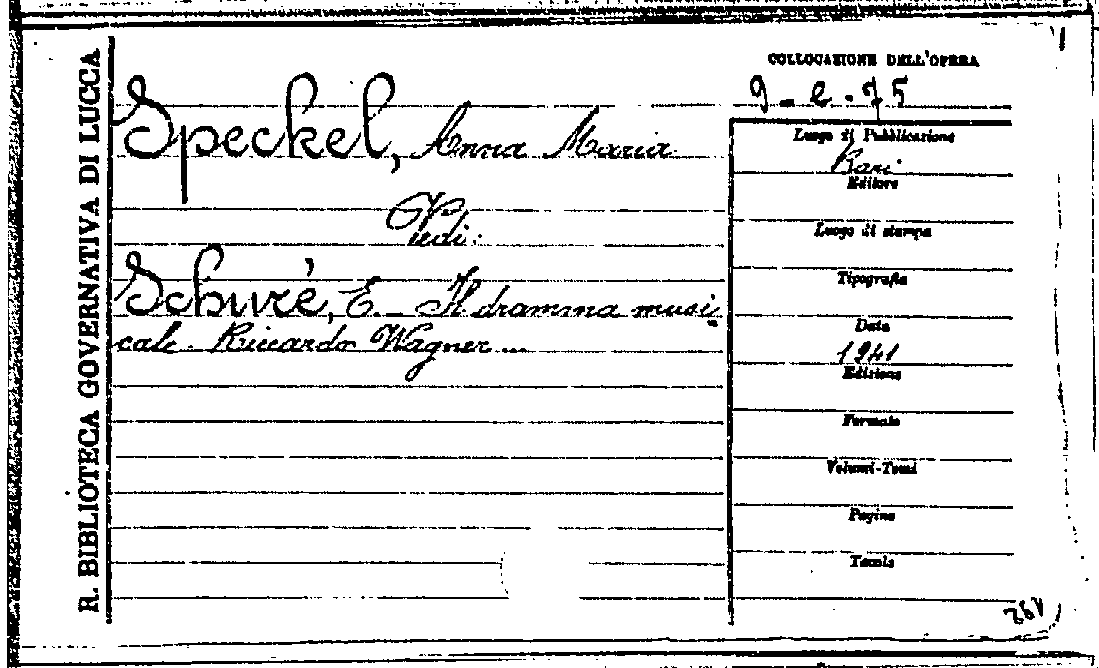 R. BIBLIOTECA GOVERNATIVA DI LUCCA
Speckel, Anna Maria
Vedi:
Schuré, E. - Il dramma musi
cale. Riccardo Wagner...
COLLOCAZIONE DELL'OPERA
9 - e - 75
Luogo di Pubblicazione
Bari
Editore
Luogo di stampa
Tipografia
Data
1941
Edizione
Formato
Volumi-Tomi
Pagine
Tavole